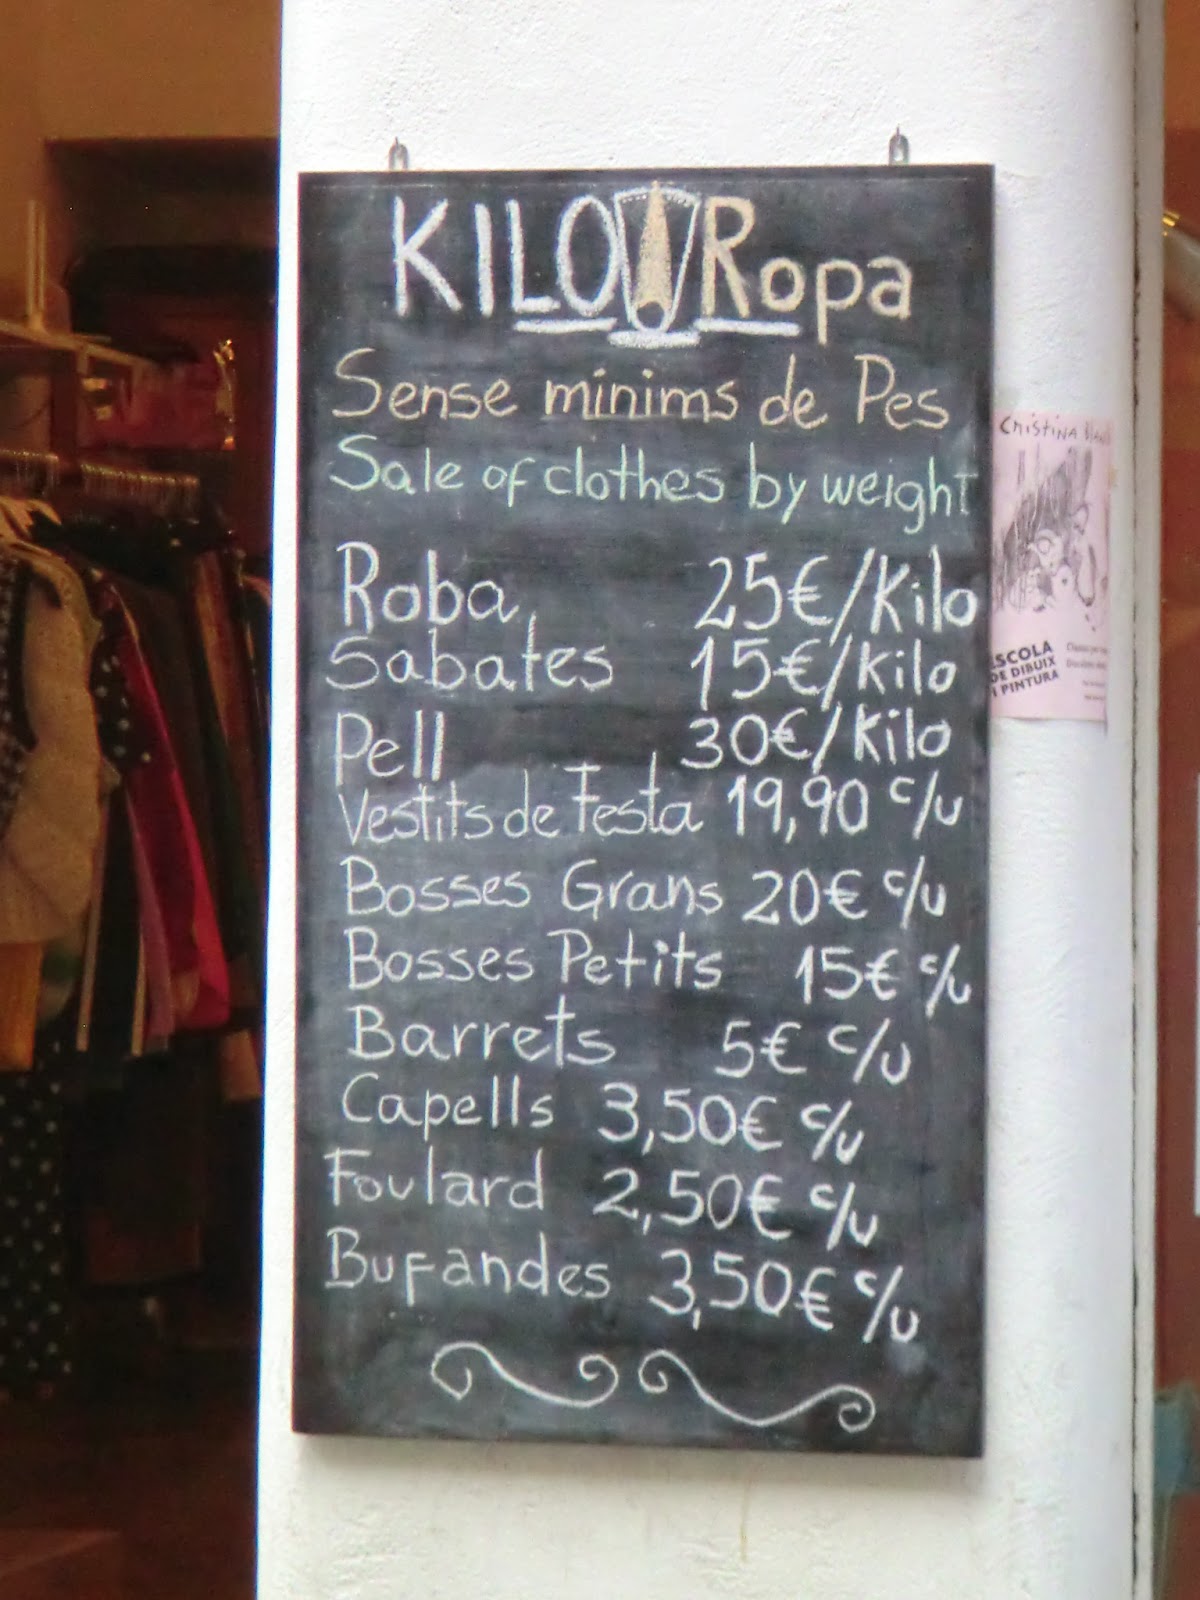 KILO Ropa
Sense minims de Pes
Sale of clothes by weight
Roba 25€/Kilo
Sabates 15€/Kilo
Pell 30€/Kilo
Vestits de Festa 19,90 c/u
Bosses Grans 20€ c/u
Bosses Petits 15€ c/u
Barrets 5€ c/u
Capells 3,50€ c/u
Foulard 2,50€ c/u
Bufandes 3,50€ c/u
CRISTINA
ESCOLA
DE DIBUIX
I PINTURA